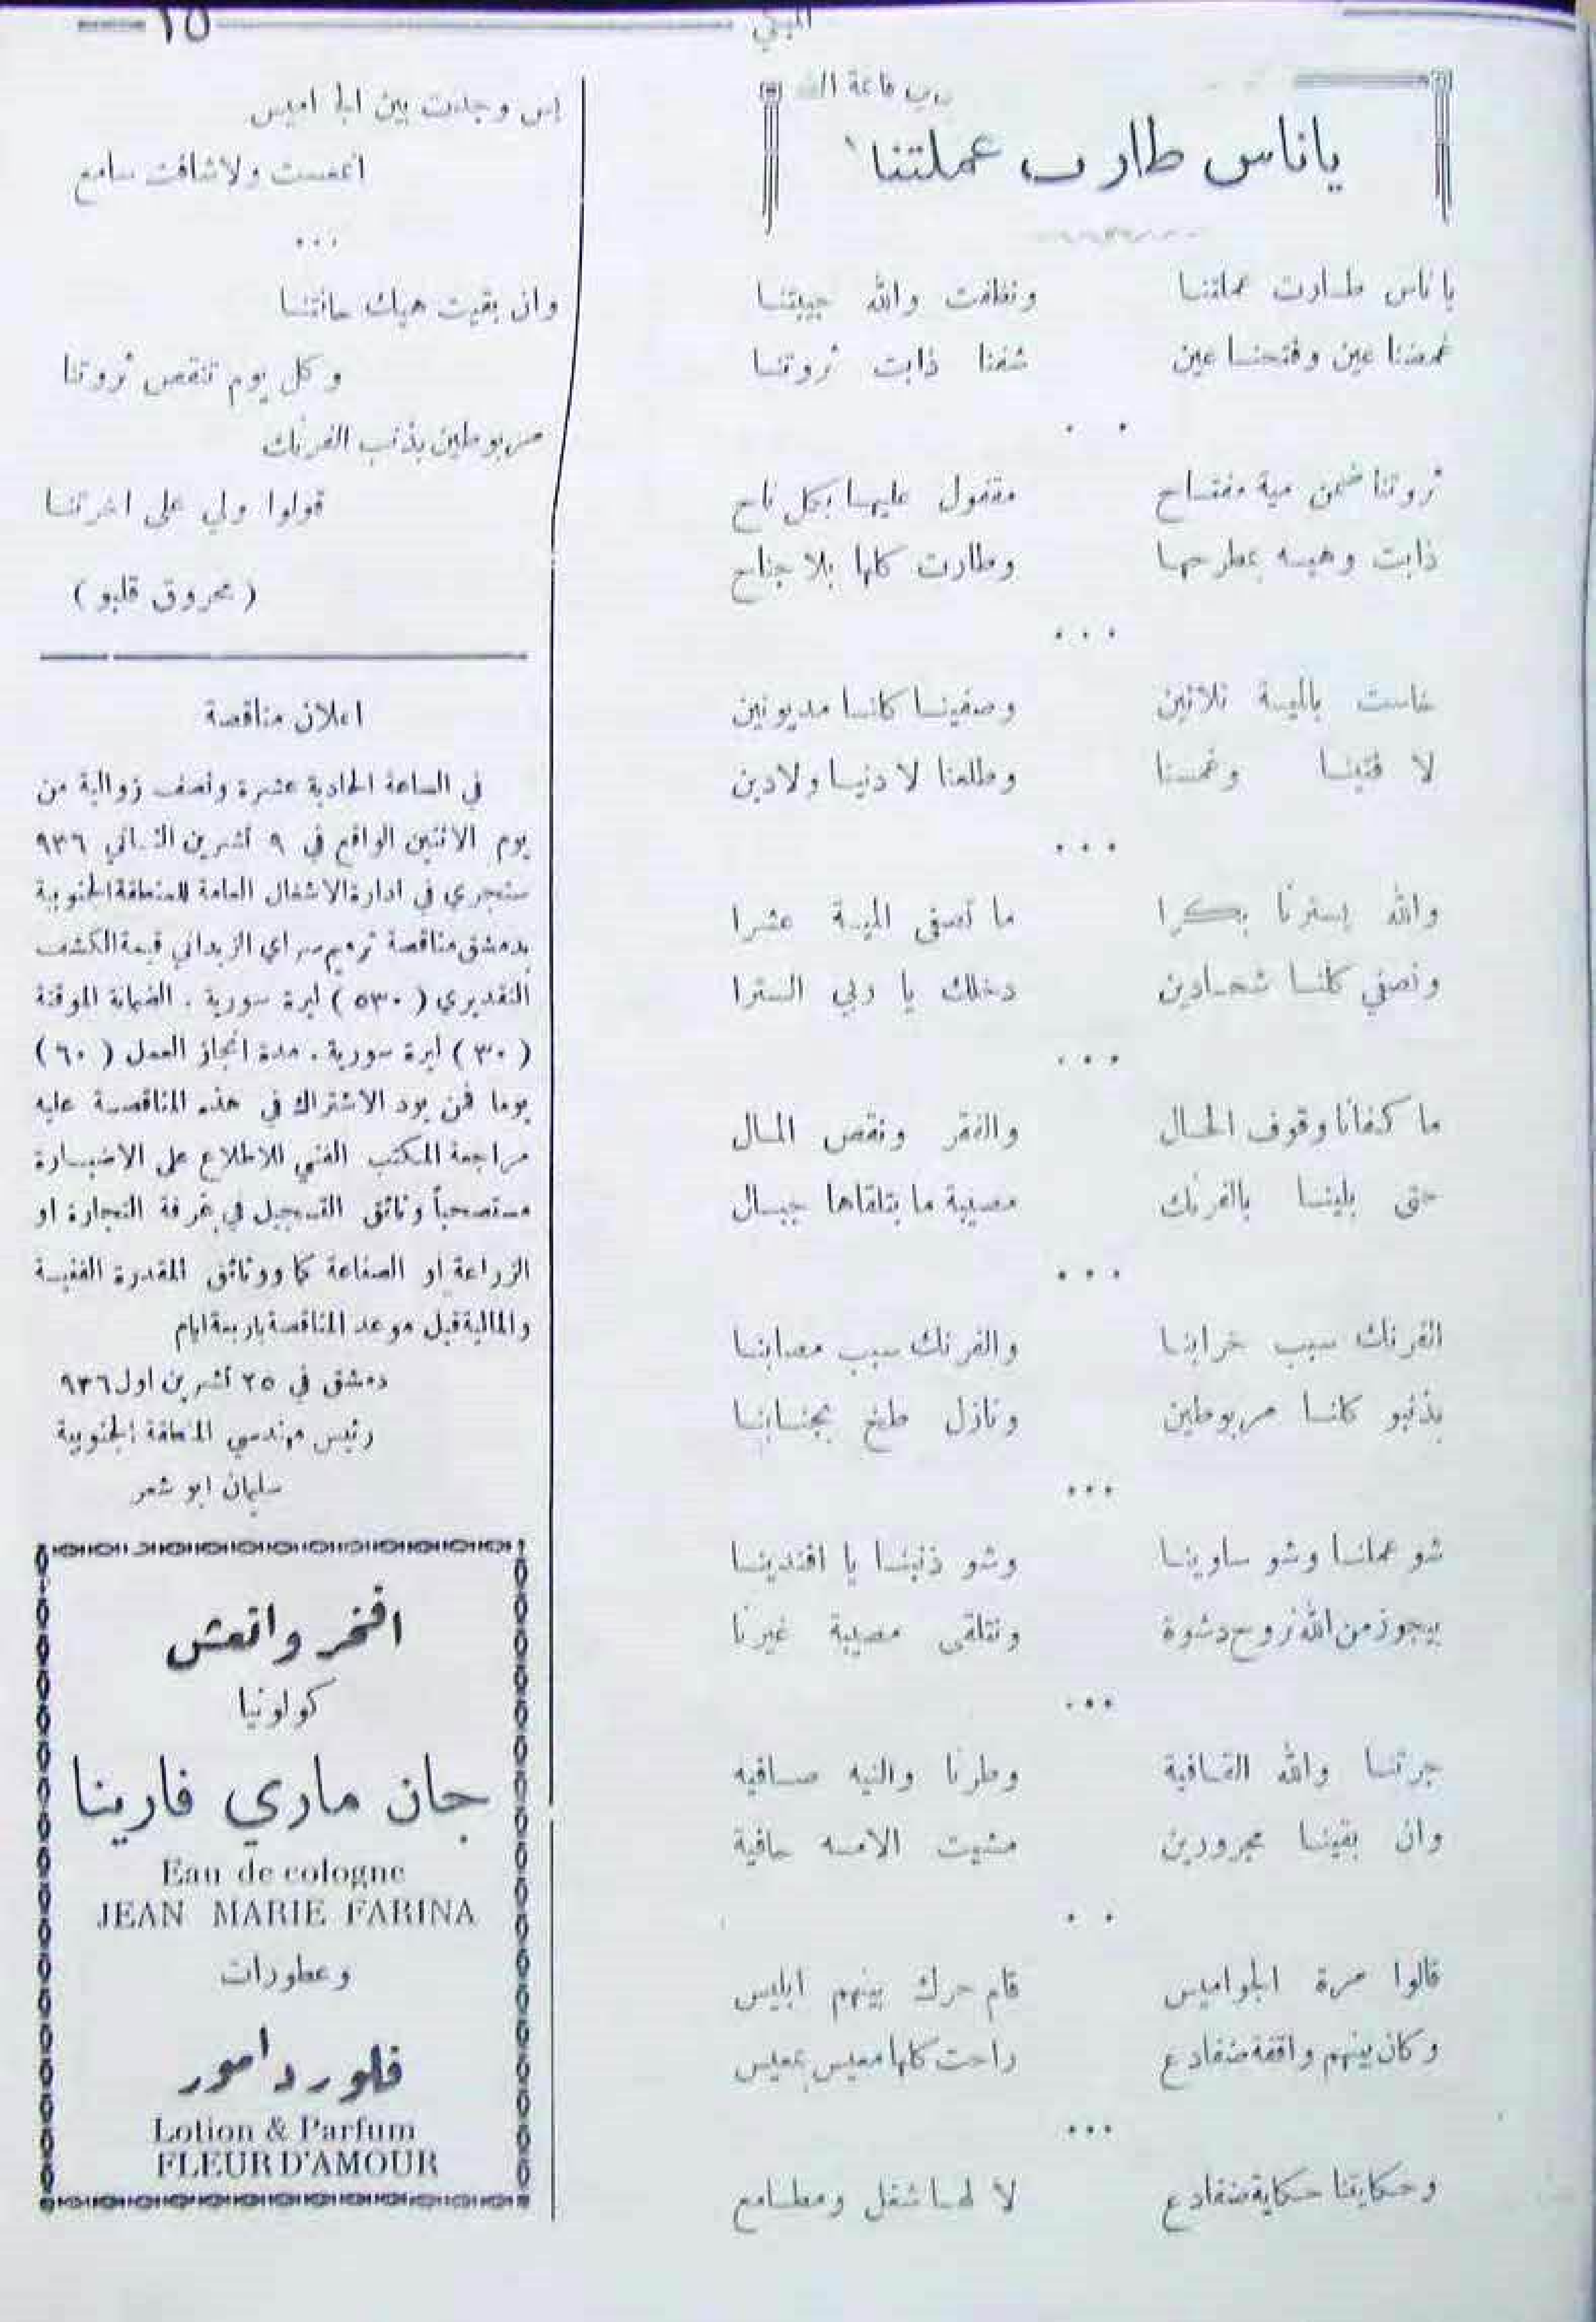 ١٥
يا ناس طارت عملتنا
يا ناس طارت عملتنا ونظفت والله جيبتنا
غمضنا عين وفتحنا عين شفنا ذابت ثروتنا
ثروتنا ضمن مية مفتاح مقفول عليها بكل ناح
ذابت وهيه بمطرحها وطارت كلها بلا جناح
...
خاست بالمية ثلاثين وصفينا كلنا مديونين
لا فتينا وغمسنا وطلعنا لا دنيا ولا دين
...
والله يسترنا بكرا ما تصفى المية عشرا
ونصفي كلنا شحادين دخلك يا ربي السترا
...
ما كفانا وقوف الحال والفقر ونقص المال
حتى بلينا بالفرنك مصيبة ما بتلقاها جبال
...
الفرنك سبب خرابنا والفرنك سبب مصابنا
بذنبو كلنا مربوطين ونازل طخ بجنابنا
...
شو عملنا وشو ساوينا وشو ذنبنا يا افندينا
بيجوز من الله نروح دشوة ونتلقى مصيبة غيرنا
...
جرتنا والله القافية وطرنا والنيه صافيه
وان بقينا مجرورين مشيت الامه حافية
قالوا مرة الجواميس قام حرك بينهم ابليس
وكان بينهم واقفة ضفادع راحت كلها معيس بمعيس
...
وحكايتنا حكاية ضفادع لا لها شغل ومطامع
بس وجدت بين الجواميس
انعفست ولا شافت سامع
...
وان بقيت هيك حالتنا
وكل يوم تنقص ثروتنا
مربوطين بذنب الفرنك
قولوا ولي على اخرتنا
(محروق قلبو)
اعلان مناقصة
في الساعة الحادية عشرة ونصف زوالية من
يوم الاثنين الواقع في ٩ تشرين الثاني ٩٣٦
ستجري في ادارة الاشغال العامة للمنطقة الجنوبية
بدمشق مناقصة ترميم سراي الزبداني قيمة الكشف
التقديري (٥٣٠) ليرة سورية . الضمانة الموقتة
(٣٠) ليرة سورية . مدة انجاز العمل (٦٠)
يوما فمن يود الاشتراك في هذه المناقصة عليه
مراجعة المكتب الفني للاطلاع على الاضبارة
مستصحباً وثائق التسجيل في غرفة التجارة او
الزراعة او الصناعة كما ووثائق المقدرة الفنية
والمالية قبل موعد المناقصة باربعة ايام
دمشق في ٢٥ تشرين اول ٩٣٦
رئيس مهندسي المنطقة الجنوبية
سليمان ابو شعر
افخر وانعش
كولونيا
جان ماري فارينا
Eau de cologne
JEAN MARIE FARINA
وعطورات
فلور دامور
Lotion & Parfum
FLEUR D'AMOUR